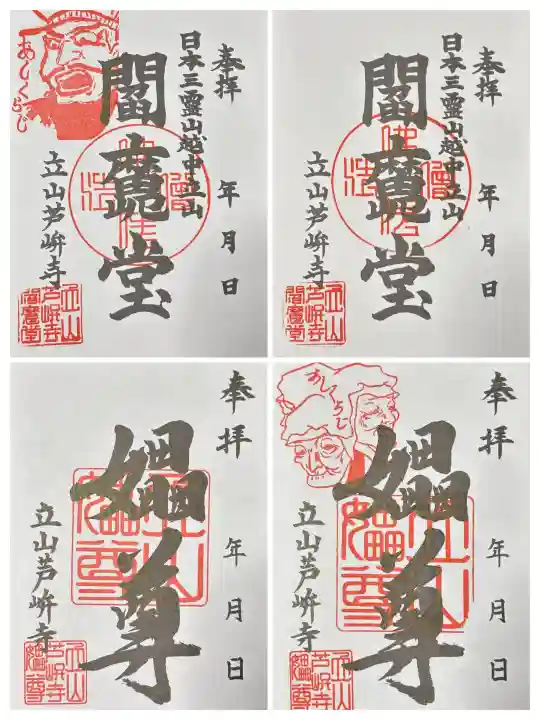 奉拝
日本三霊山越中立山
閻魔堂
年月日
立山芦峅寺
あしくらじ
立山
芦峅寺
閻魔堂
奉拝
日本三霊山越中立山
閻魔堂
年月日
立山芦峅寺
立山
芦峅寺
閻魔堂
奉拝
年月日
媼尊
立山芦峅寺
立山
芦峅寺
媼尊
奉拝
年月日
媼尊
立山芦峅寺
あしくらじ
立山
芦峅寺
媼尊